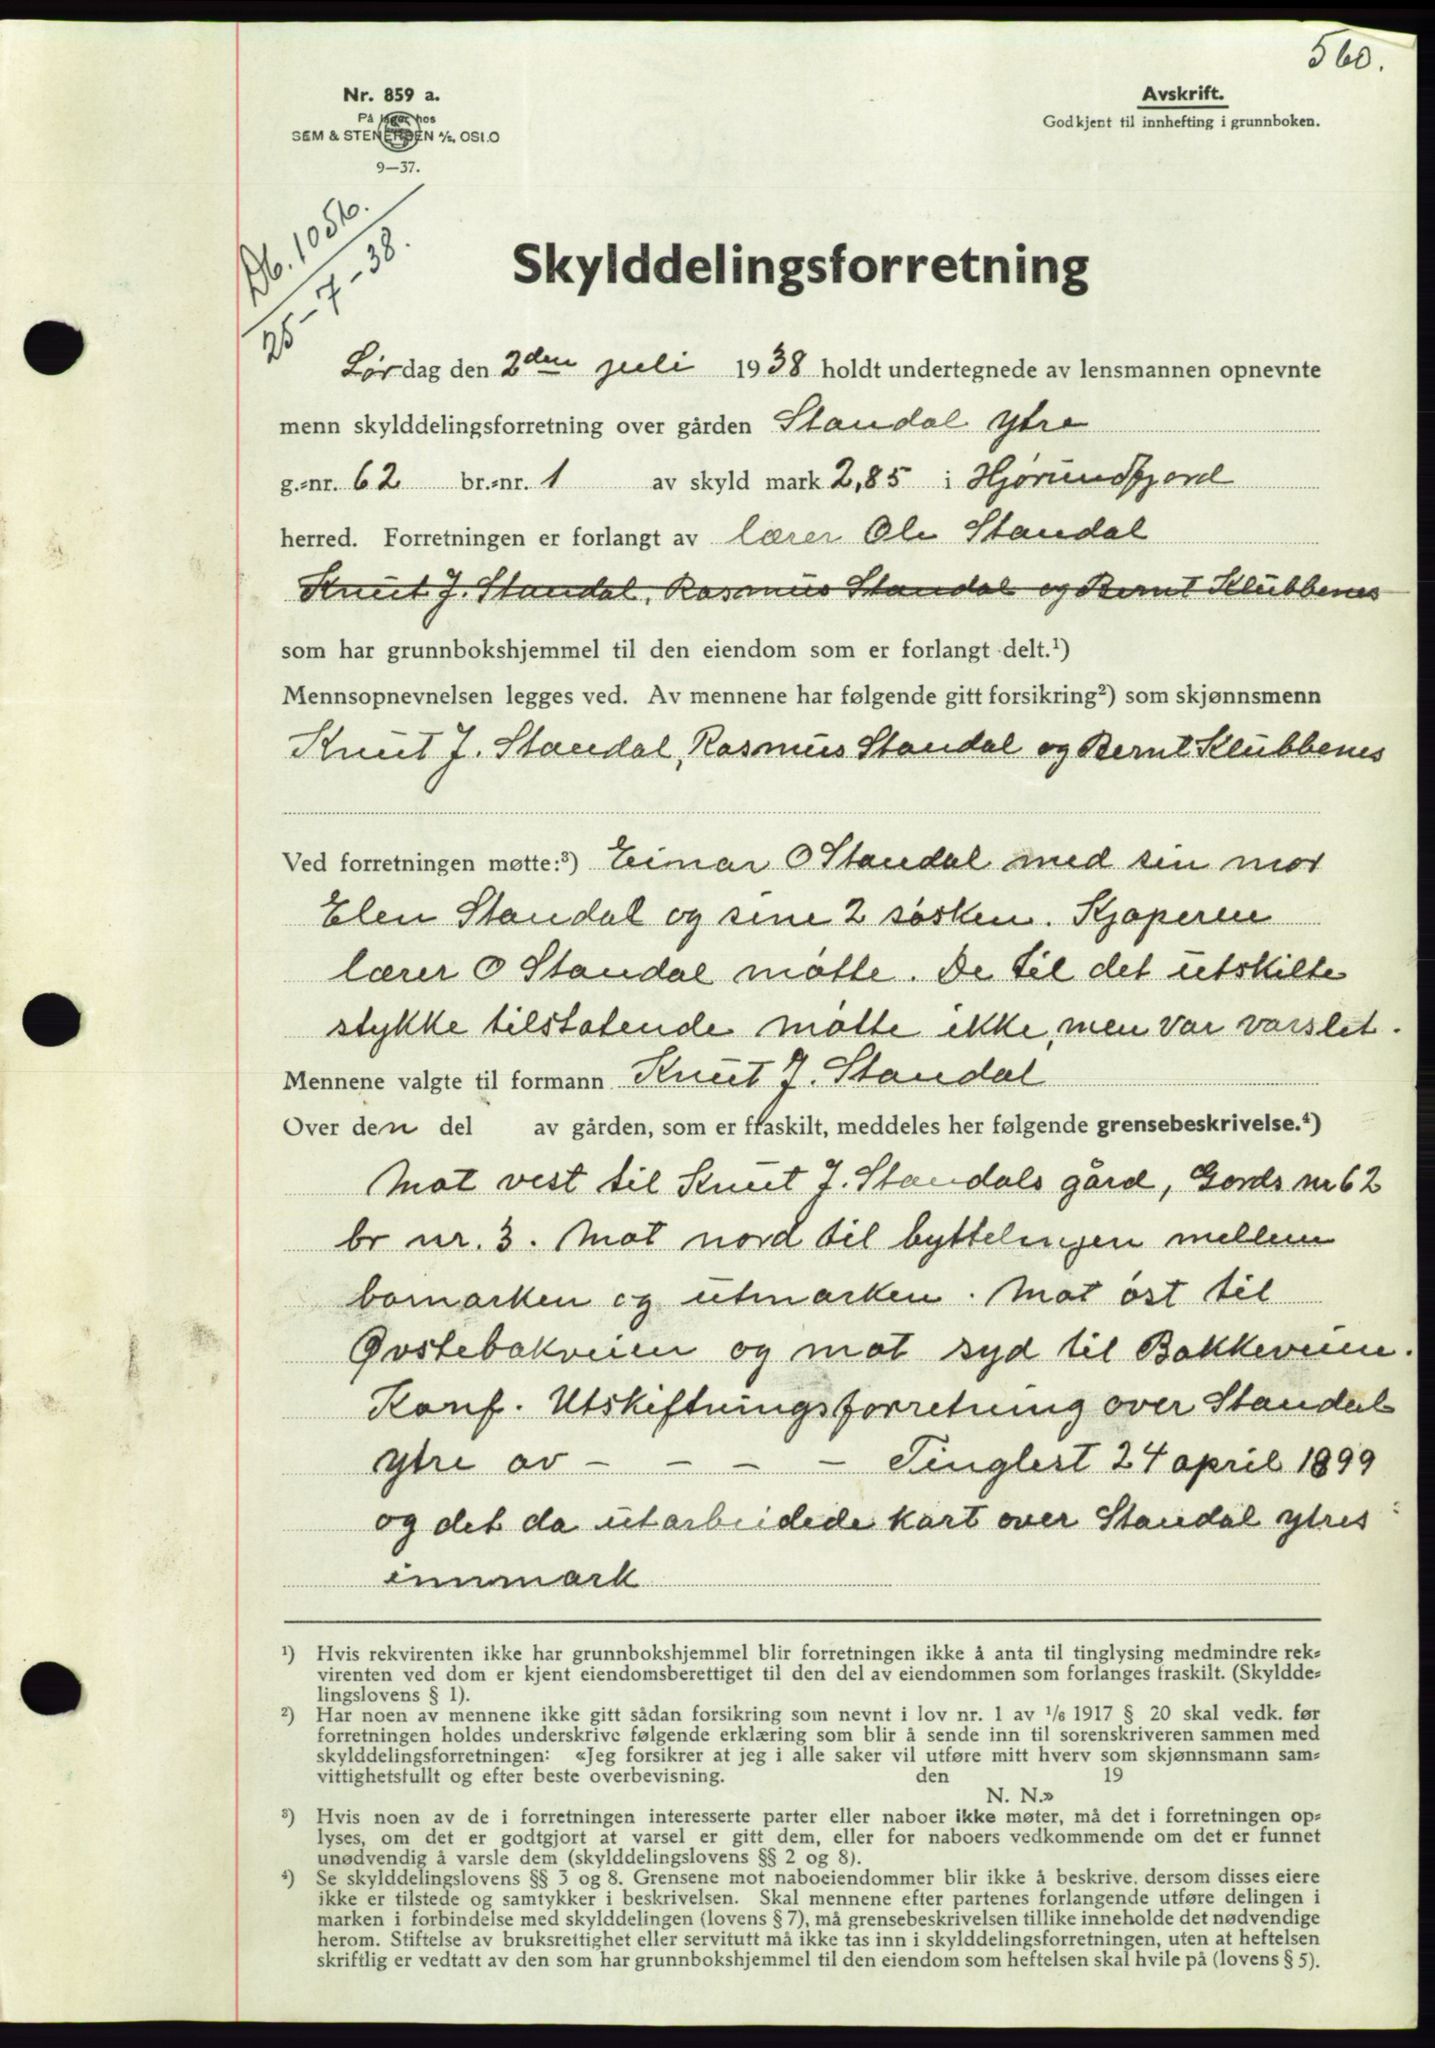 560.
Nr. 859 a.
På lager hos
SEM & STENERSEN A/S, OSLO
9—37.
Avskrift.
Godkjent til innhefting i grunnboken.
Db. 1056.
25-7-38.
Skylddelingsforretning
Lørdag den 2den juli 1938 holdt undertegnede av lensmannen opnevnte
menn skylddelingsforretning over gården Standal Ytre
g.=nr. 62 br.=nr. 1 av skyld mark 2,85 i Hjørundfjord
herred. Forretningen er forlangt av lærer Ole Standal
Knut J. Standal, Rasmus Standal og Bernt Klubbenes
som har grunnbokshjemmel til den eiendom som er forlangt delt.¹)
Mennsopnevnelsen legges ved. Av mennene har følgende gitt forsikring²) som skjønnsmenn
Knut J. Standal, Rasmus Standal og Bernt Klubbenes
Ved forretningen møtte:³) Einar O Standal med sin mor
Elen Standal og sine 2 søsken. Kjøperen
lærer O Standal møtte. De til det utskilte
stykke tilstøtende møtte ikke, men var varslet.
Mennene valgte til formann Knut J. Standal
Over den del av gården, som er fraskilt, meddeles her følgende grensebeskrivelse.⁴)
Mot vest til Knut J. Standals gård, Gards nr 62
br nr. 3. Mot nord til byttelinjen mellem
bømarken og utmarken. Mot øst til
Øvstebakveien og mot syd til Bakkeveien.
Konf. Utskiftningsforretning over Standal
ytre av - - - - Tinglest 24 april 1899
og det da utarbeidede kart over Standal ytres
innmark
¹) Hvis rekvirenten ikke har grunnbokshjemmel blir forretningen ikke å anta til tinglysing medmindre rek=
virenten ved dom er kjent eiendomsberettiget til den del av eiendommen som forlanges fraskilt. (Skyldde=
lingslovens § 1).
²) Har noen av mennene ikke gitt sådan forsikring som nevnt i lov nr. 1 av 1/6 1917 § 20 skal vedk. før
forretningen holdes underskrive følgende erklæring som blir å sende inn til sorenskriveren sammen med
skylddelingsforretningen: «Jeg forsikrer at jeg i alle saker vil utføre mitt hverv som skjønnsmann sam=
vittighetsfullt og efter beste overbevisning. den 19
N. N.»
³) Hvis noen av de i forretningen interesserte parter eller naboer ikke møter, må det i forretningen op=
lyses, om det er godtgjort at varsel er gitt dem, eller for naboers vedkommende om det er funnet
unødvendig å varsle dem (skylddelingslovens §§ 2 og 8).
⁴) Se skylddelingslovens §§ 3 og 8. Grensene mot naboeiendommer blir ikke å beskrive, dersom disses eiere
ikke er tilstede og samtykker i beskrivelsen. Skal mennene efter partenes forlangende utføre delingen i
marken i forbindelse med skylddelingen (lovens § 7), må grensebeskrivelsen tillike inneholde det nødvendige
herom. Stiftelse av bruksrettighet eller servitutt må ikke tas inn i skylddelingsforretningen, uten at heftelsen
skriftlig er vedtatt av den som har grunnbokshjemmel til den eiendom som heftelsen skal hvile på (lovens § 5).